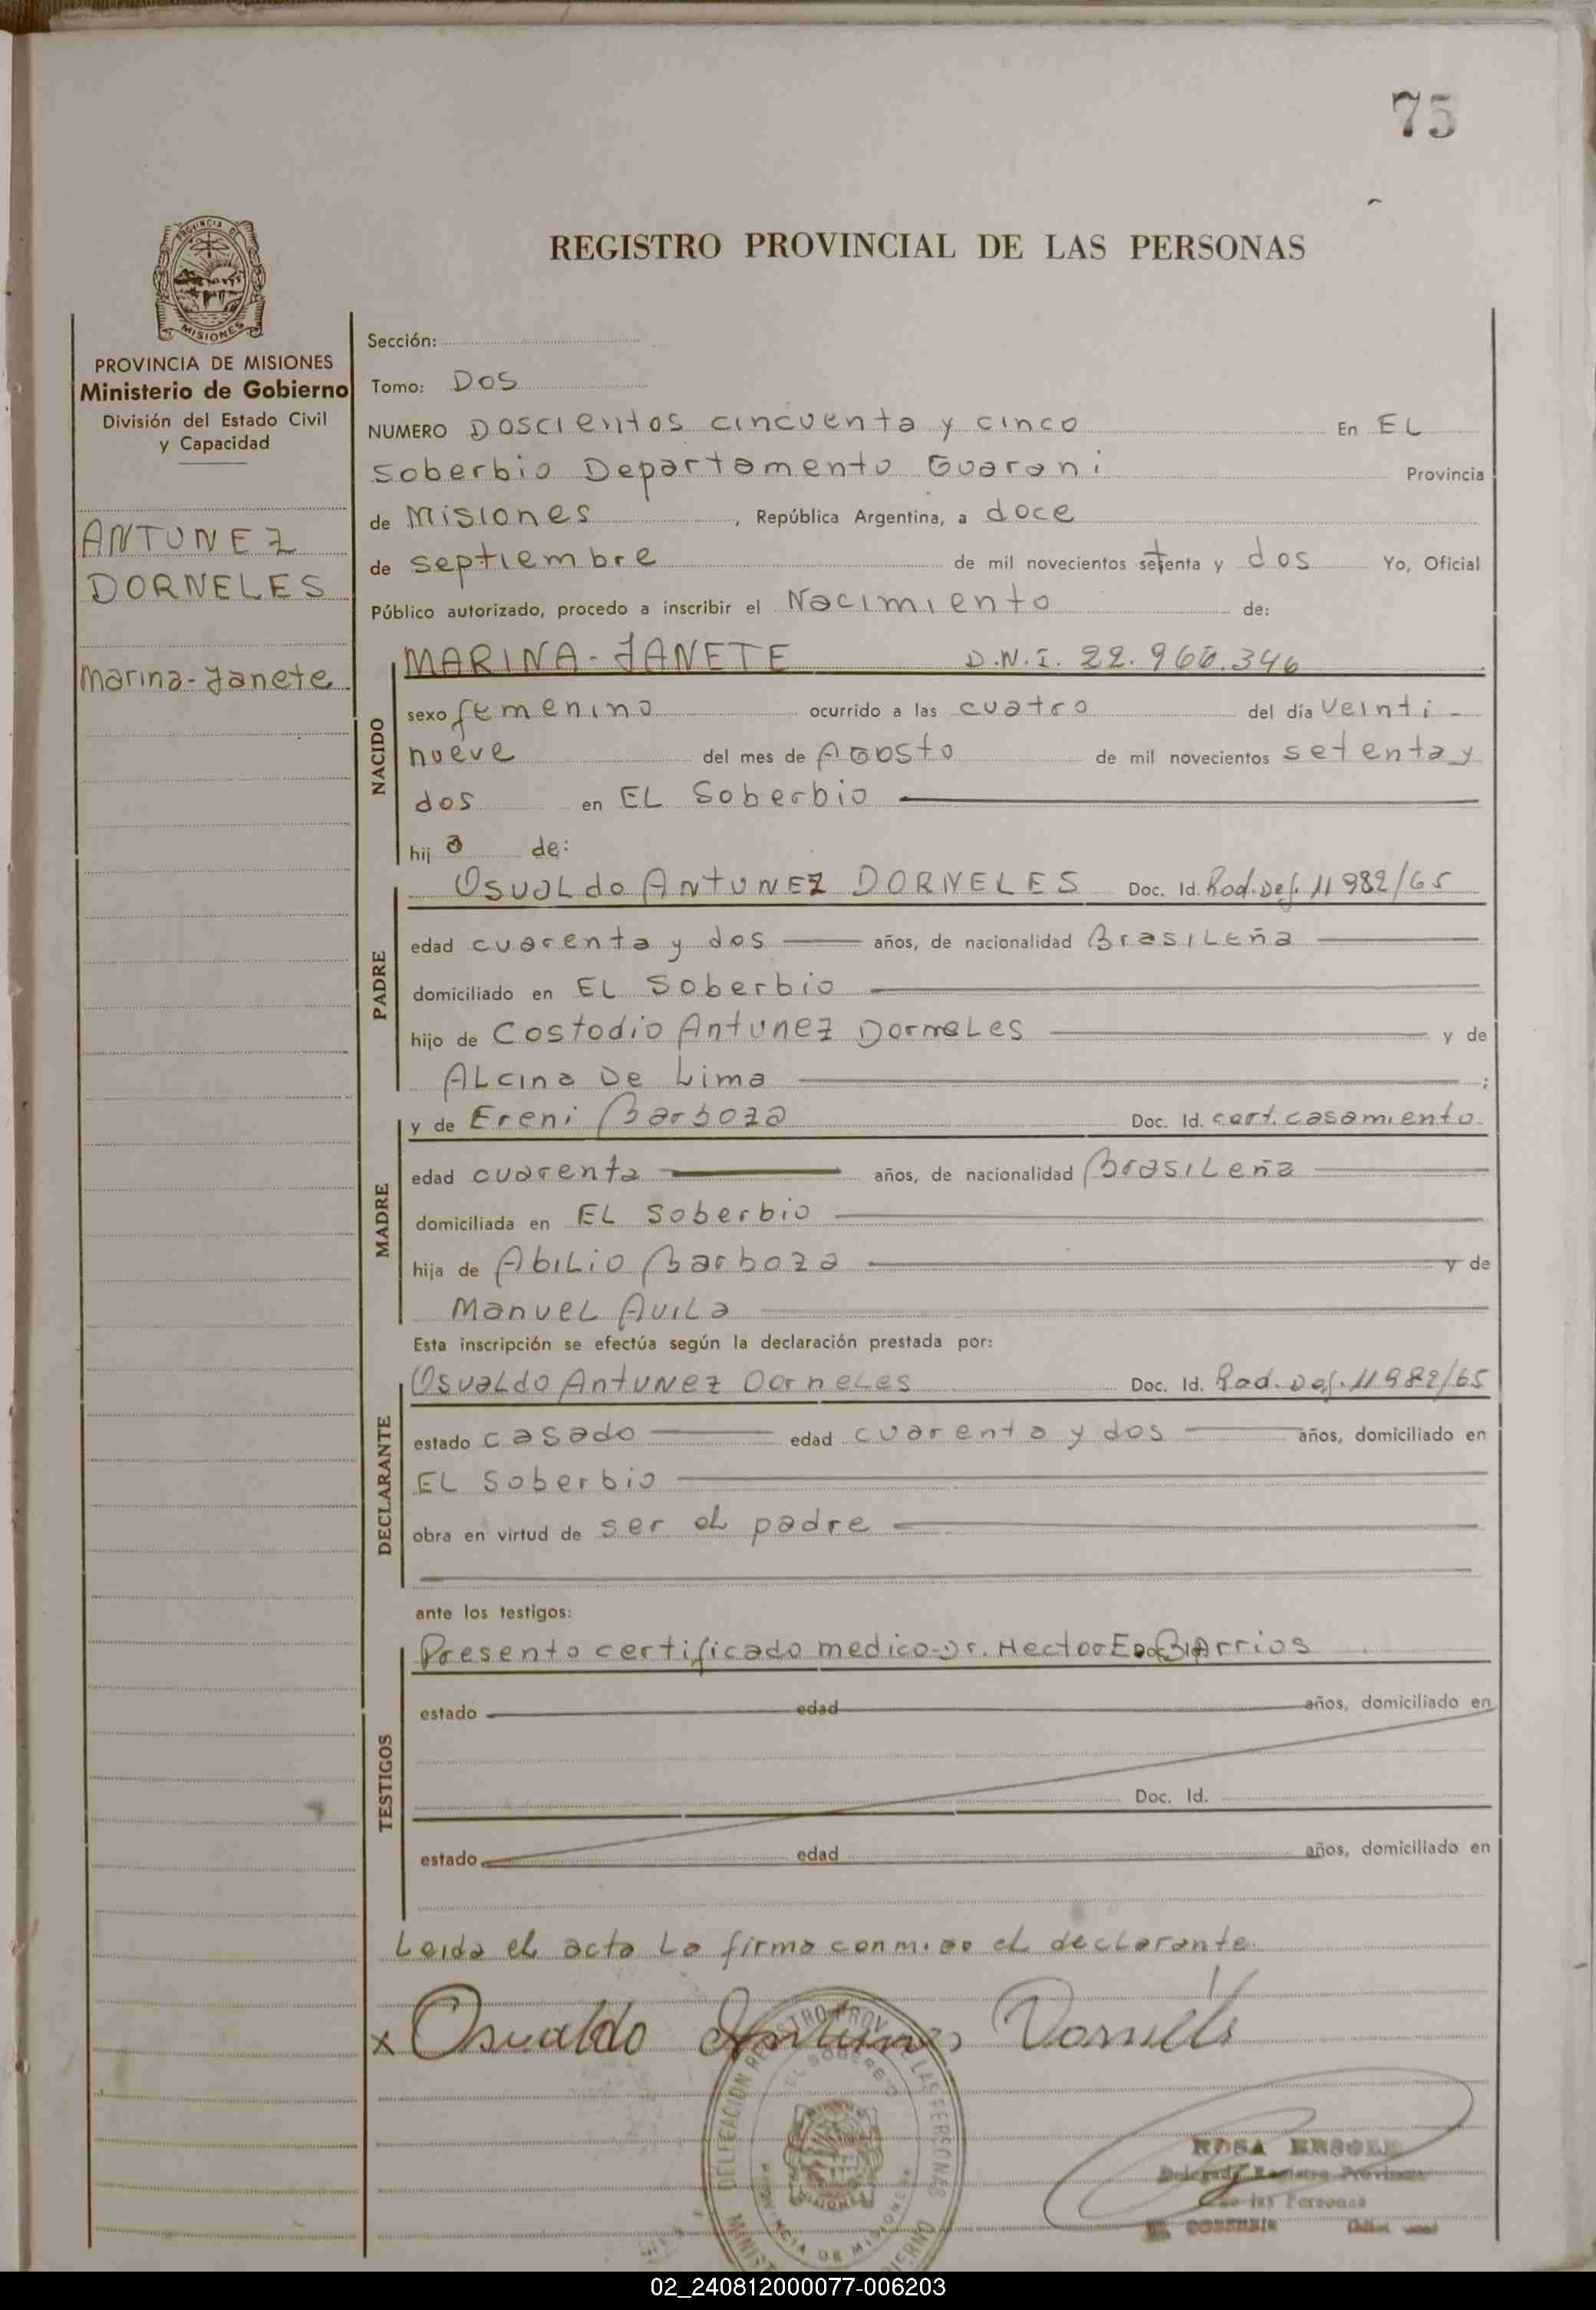 75
REGISTRO PROVINCIAL DE LAS PERSONAS
PROVINCIA DE MISIONES
Ministerio de Gobierno
División del Estado Civil
y Capacidad
ANTUNEZ
DORNELES
Marina-Janete
Sección:
Tomo: Dos
NUMERO Doscientos cincuenta y cinco En EL
Soberbio Departamento Guarani Provincia
de Misiones, República Argentina, a doce
de septiembre de mil novecientos setenta y dos Yo, Oficial
Público autorizado, procedo a inscribir el Nacimiento de:
MARINA-JANETE D.N.I. 22.966.346
NACIDO
sexo femenino ocurrido a las cuatro del día veinti-
nueve del mes de Agosto de mil novecientos setenta y
dos en EL Soberbio
hija de:
PADRE
Osvaldo ANTUNEZ DORNELES Doc. Id. Rad. Def. 11982/65
edad cuarenta y dos años, de nacionalidad Brasileña
domiciliado en EL Soberbio
hijo de Costodio Antunez Dorneles y de
Alcina De Lima ;
MADRE
y de Ereni Barboza Doc. Id. cert. casamiento
edad cuarenta años, de nacionalidad Brasileña
domiciliada en EL Soberbio
hija de Abilio Barboza y de
Manuel Avila
Esta inscripción se efectúa según la declaración prestada por:
DECLARANTE
Osvaldo Antunez Dorneles Doc. Id. Rad. Def. 11982/65
estado casado edad cuarenta y dos años, domiciliado en
EL Soberbio
obra en virtud de ser el padre
ante los testigos:
TESTIGOS
Presento certificado medico-Dr. Hector Barrios
estado edad años, domiciliado en
Doc. Id.
estado edad años, domiciliado en
Leida el acta La firma conmigo el declarante
x Osvaldo Antunes Dornels
DELEGACION REGISTRO PROV. DE LAS PERSONAS
EL SOBERBIO
PROVINCIA DE MISIONES
ROSA
Registro Provincial
de las Personas
EL SOBERBIO
02_240812000077-006203